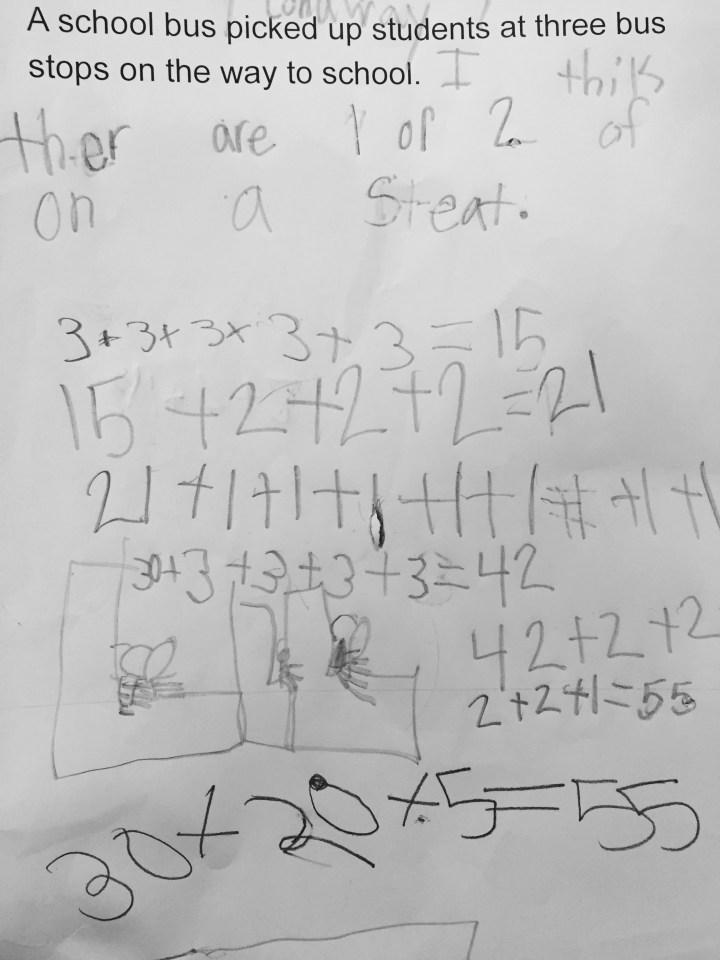 A school bus picked up students at three bus
stops on the way to school. I thik
ther are 1 or 2 of
on a Steat.
3+3+3+3+3=15
15+2+2+2=21
21+1+1+1+1+1 +1+1
30+3+3+3+3=42
42+2+2
2+2+1=55
30+20+5=55